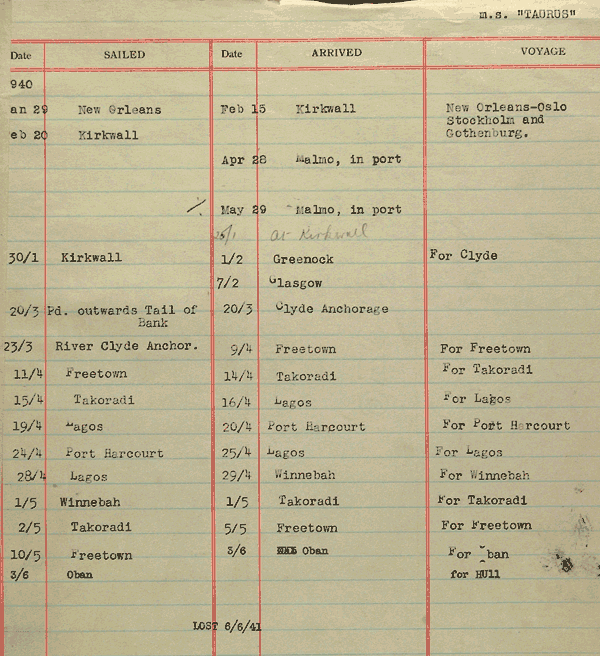 m.s. "TAURUS"
Date SAILED Date ARRIVED VOYAGE
940
an 29 New Orleans Feb 15 Kirkwall New Orleans-Oslo
Stockholm and
eb 20 Kirkwall Gothenburg.
Apr 28 Malmo, in port
May 29 Malmo, in port
25/1 At Kirkwall
30/1 Kirkwall 1/2 Greenock For Clyde
7/2 Glasgow
20/3 Pd. outwards Tail of 20/3 Clyde Anchorage
Bank
23/3 River Clyde Anchor. 9/4 Freetown For Freetown
11/4 Freetown 14/4 Takoradi For Takoradi
15/4 Takoradi 16/4 Lagos For Lagos
19/4 Lagos 20/4 Port Harcourt For Port Harcourt
24/4 Port Harcourt 25/4 Lagos For Lagos
28/4 Lagos 29/4 Winnebah For Winnebah
1/5 Winnebah 1/5 Takoradi For Takoradi
2/5 Takoradi 5/5 Freetown For Freetown
10/5 Freetown 3/6 Oban For Oban
3/6 Oban for HUll
LOST 6/6/41